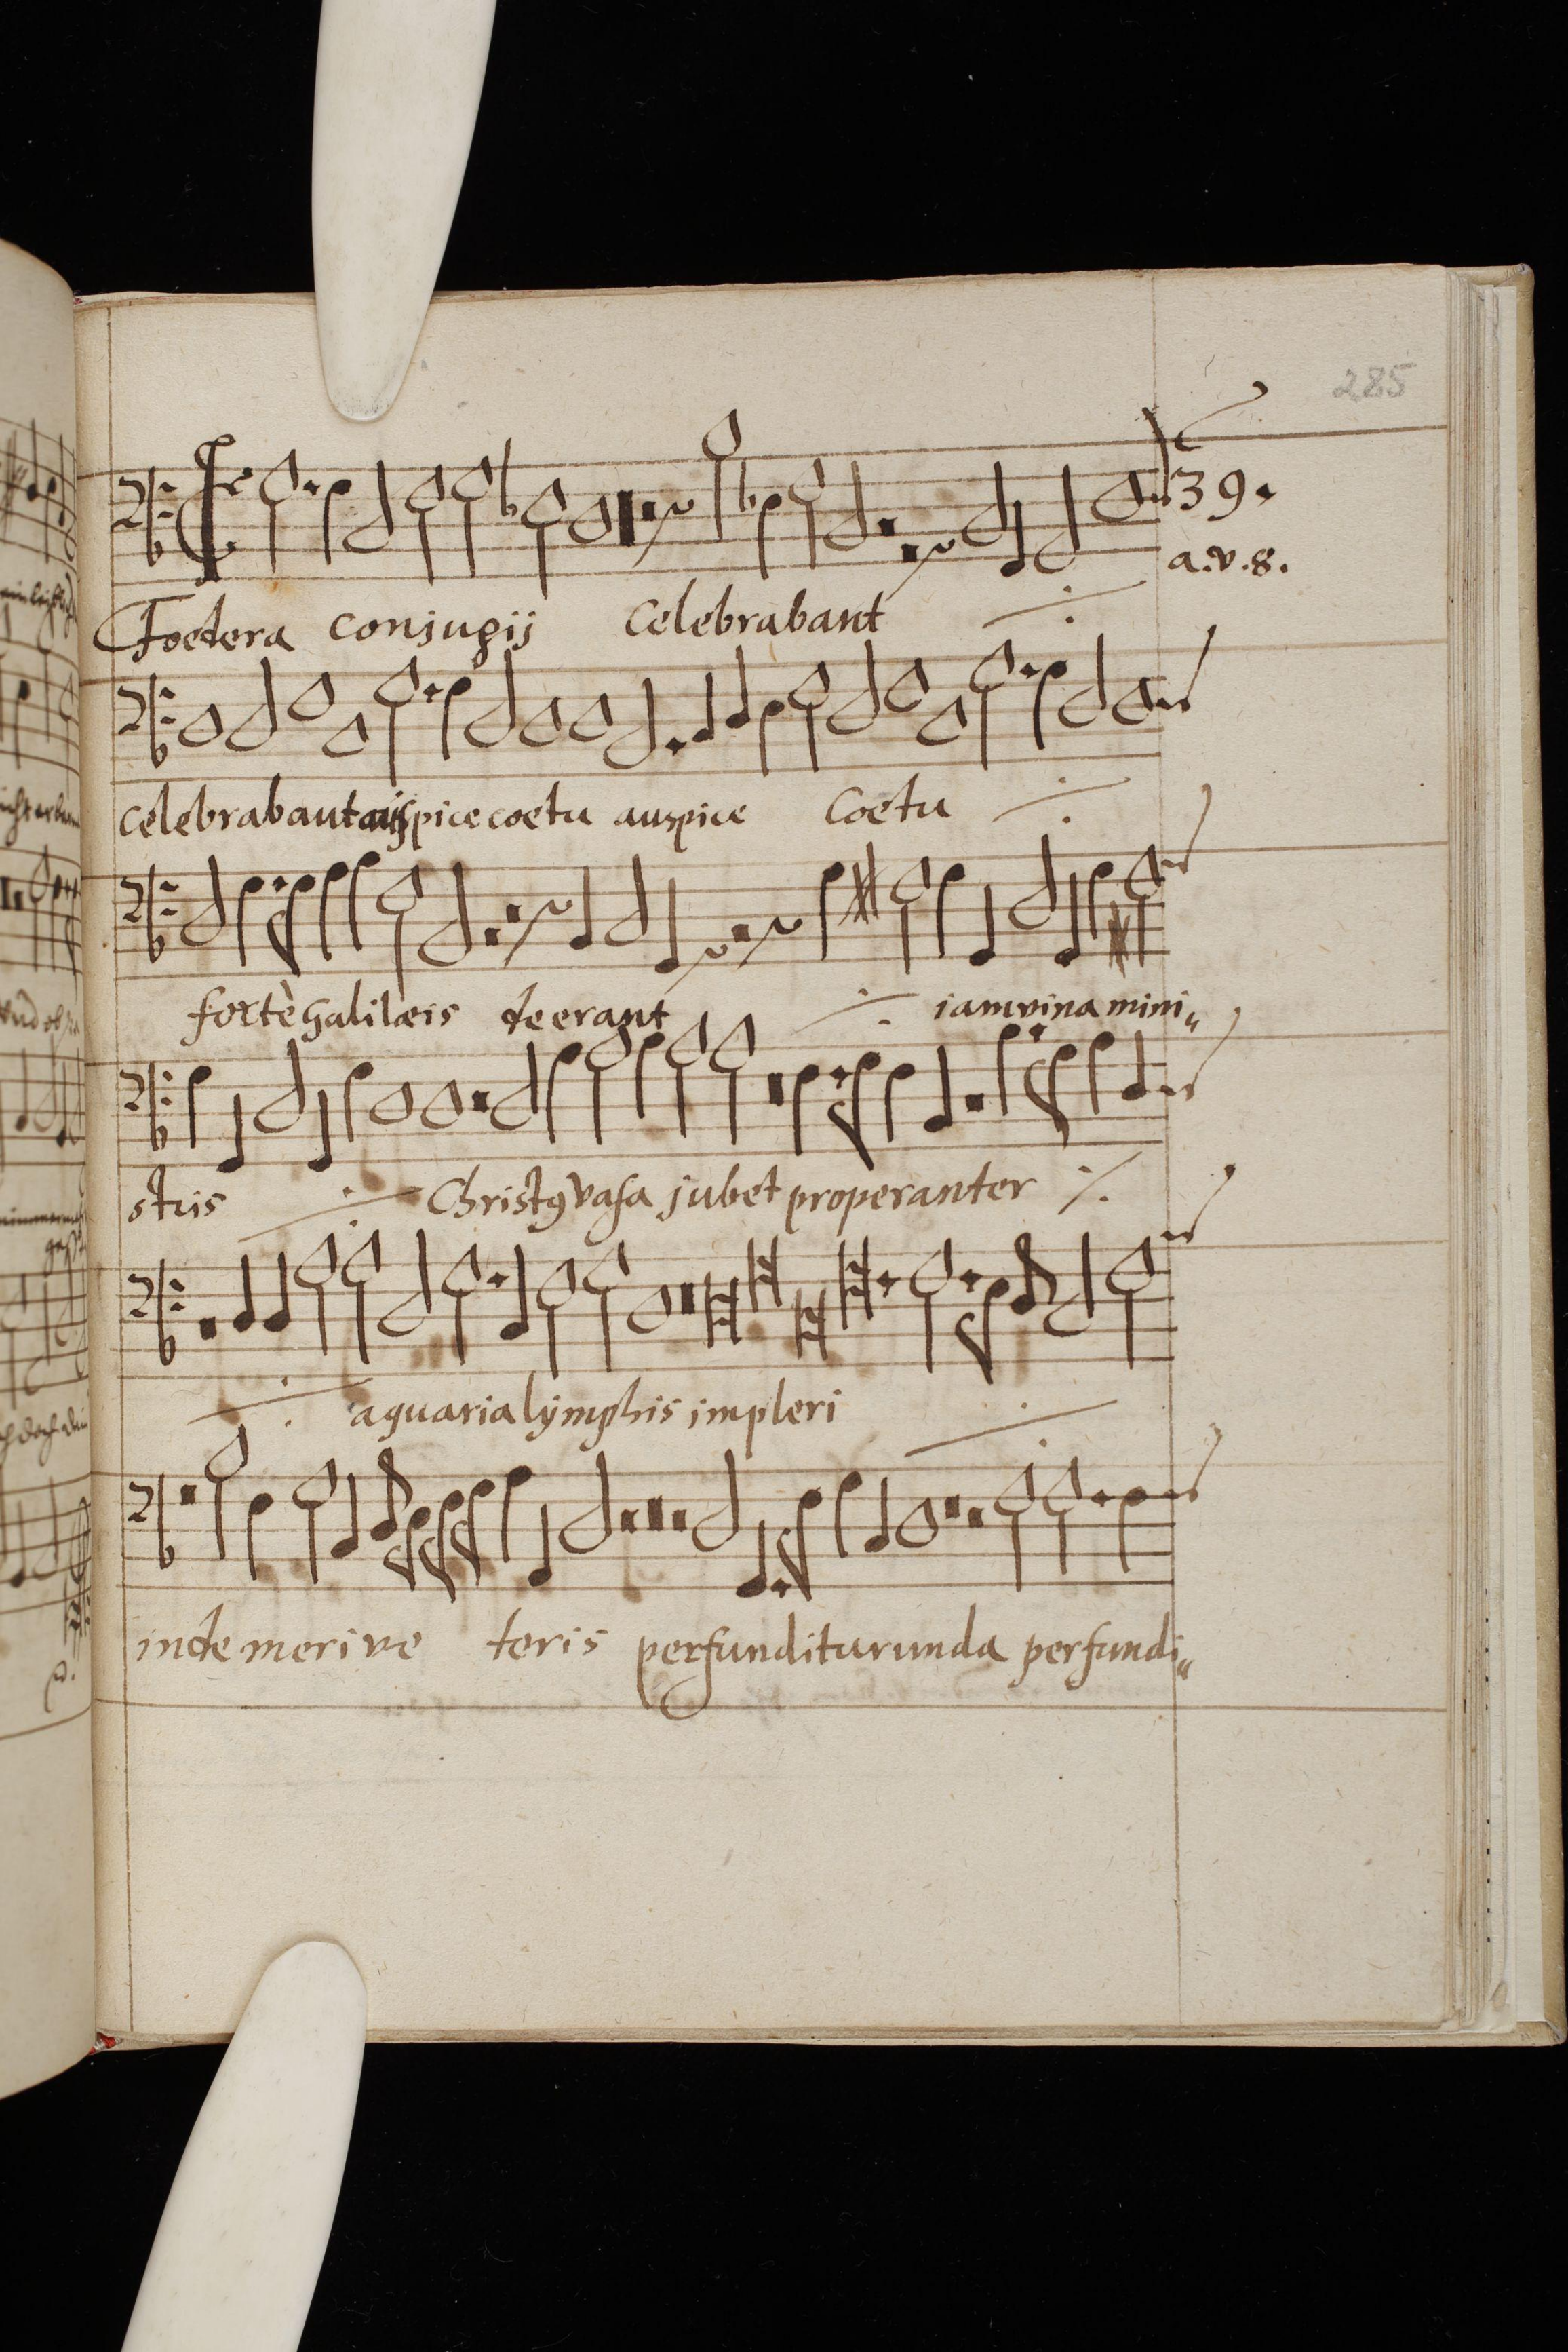 285
39.
a.v.8.
Foedera conjugij Celebrabant
celebrabant auspice coetu auspice Coetu
fortè galilæis deerant iam vina mini„
stris Christ9 vasa jubet properanter
aquaria lymphis impleri
inde meri ve teris perfunditur unda perfundi„